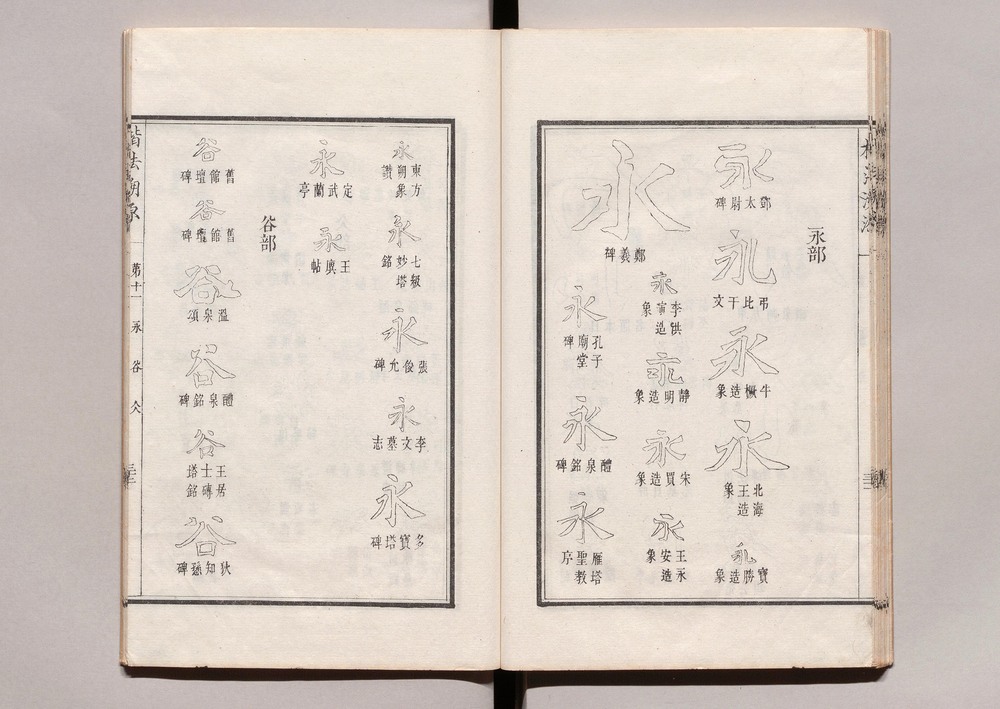 永部
永
鄧太尉碑
永
弔比干文
永
牛橛造象
永
北海王造象
永
寶勝造象
永
鄭義碑
永
李洪演造象
永
靜明造象
永
宋買造象
永
王永安造象
永
孔子廟堂碑
永
醴泉銘碑
永
雁塔聖教序
永
東方朔象讚
永
七級妙塔銘
永
張俊允碑
永
李文墓志
永
多寶塔碑
永
定武蘭亭
永
王廙帖
谷部
谷
舊館壇碑
谷
舊館壇碑
谷
溫泉頌
谷
醴泉銘碑
谷
王居士磚塔銘
谷
狄知愻碑
楷法溯源
第十一
永
谷
仌